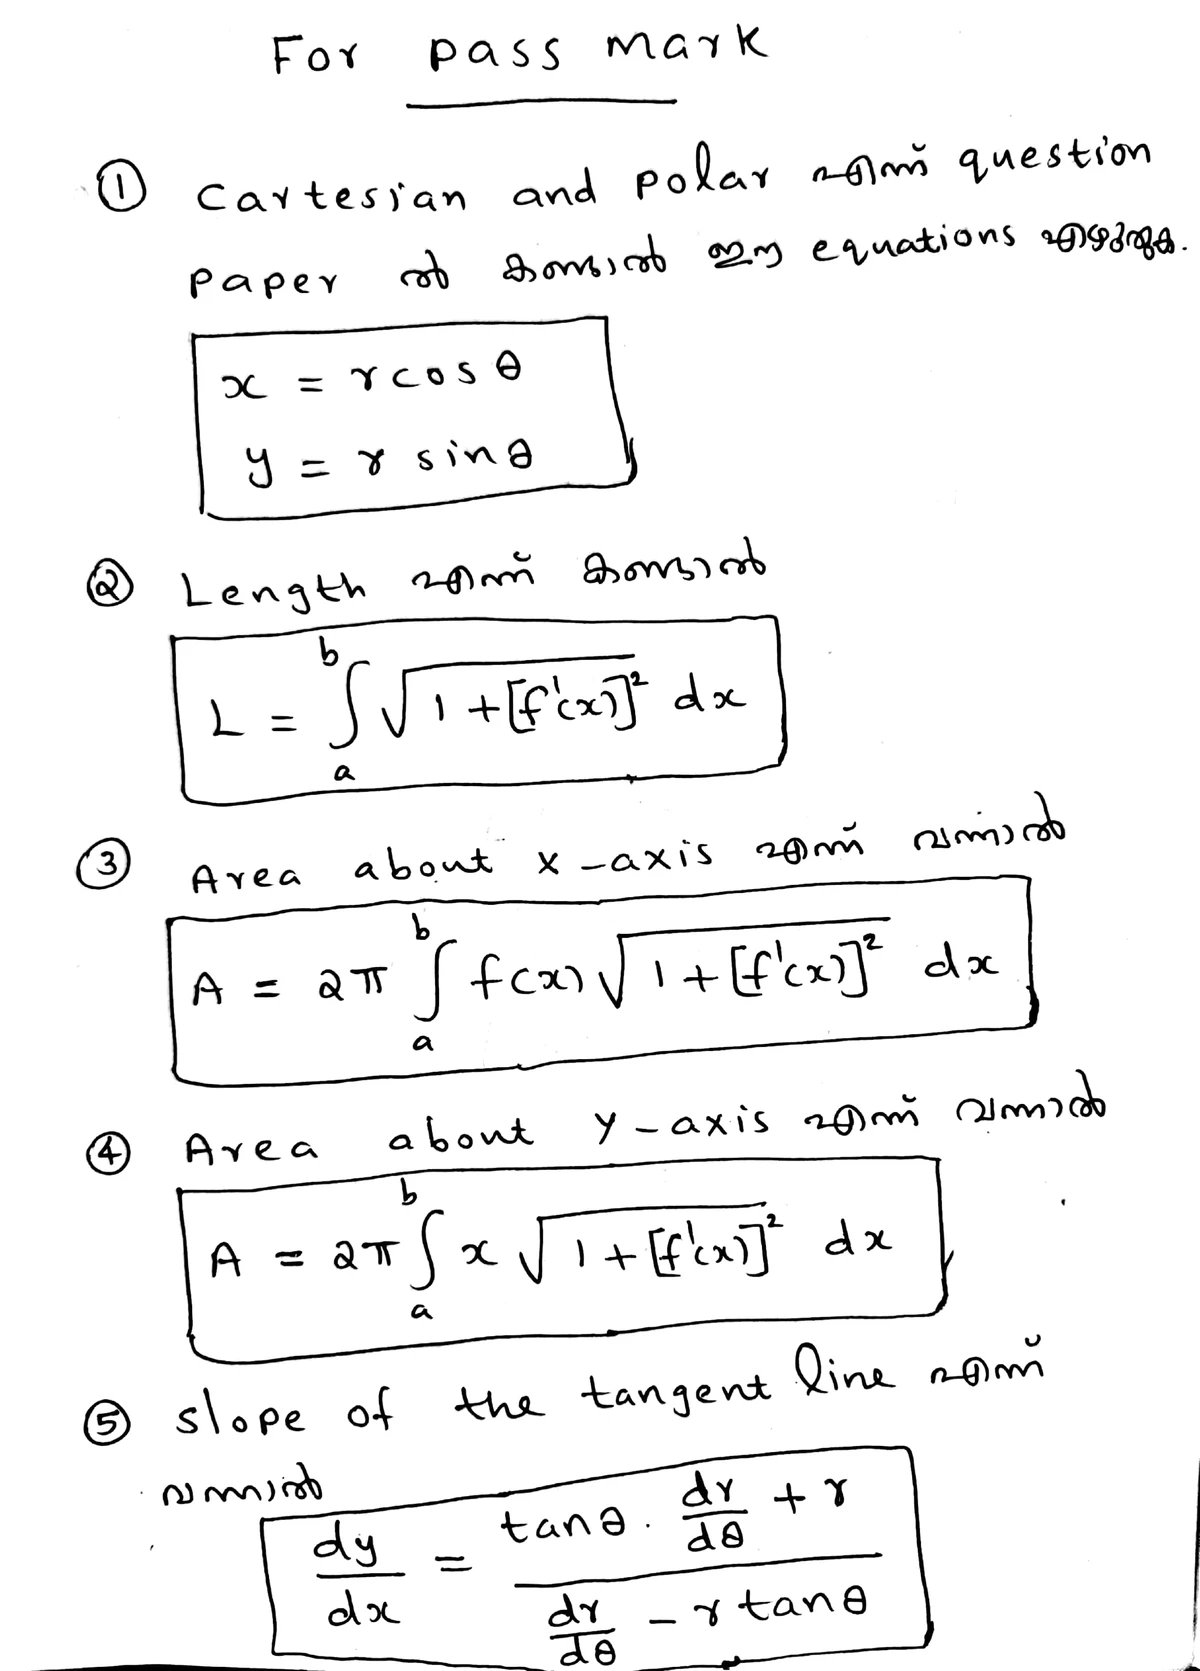 For pass mark
① Cartesian and polar എന്ന് question
paper ൽ കണ്ടാൽ ഈ equations എഴുതുക.
x = r cos θ
y = r sin θ
② Length എന്ന് കണ്ടാൽ
L = ∫ₐᵇ √(1 + [f'(x)]²) dx
③ Area about x-axis എന്ന് വന്നാൽ
A = 2π ∫ₐᵇ f(x) √(1 + [f'(x)]²) dx
④ Area about y-axis എന്ന് വന്നാൽ
A = 2π ∫ₐᵇ x √(1 + [f'(x)]²) dx
⑤ slope of the tangent line എന്ന്
വന്നാൽ
dy/dx = (tan θ · dr/dθ + r) / (dr/dθ − r tan θ)